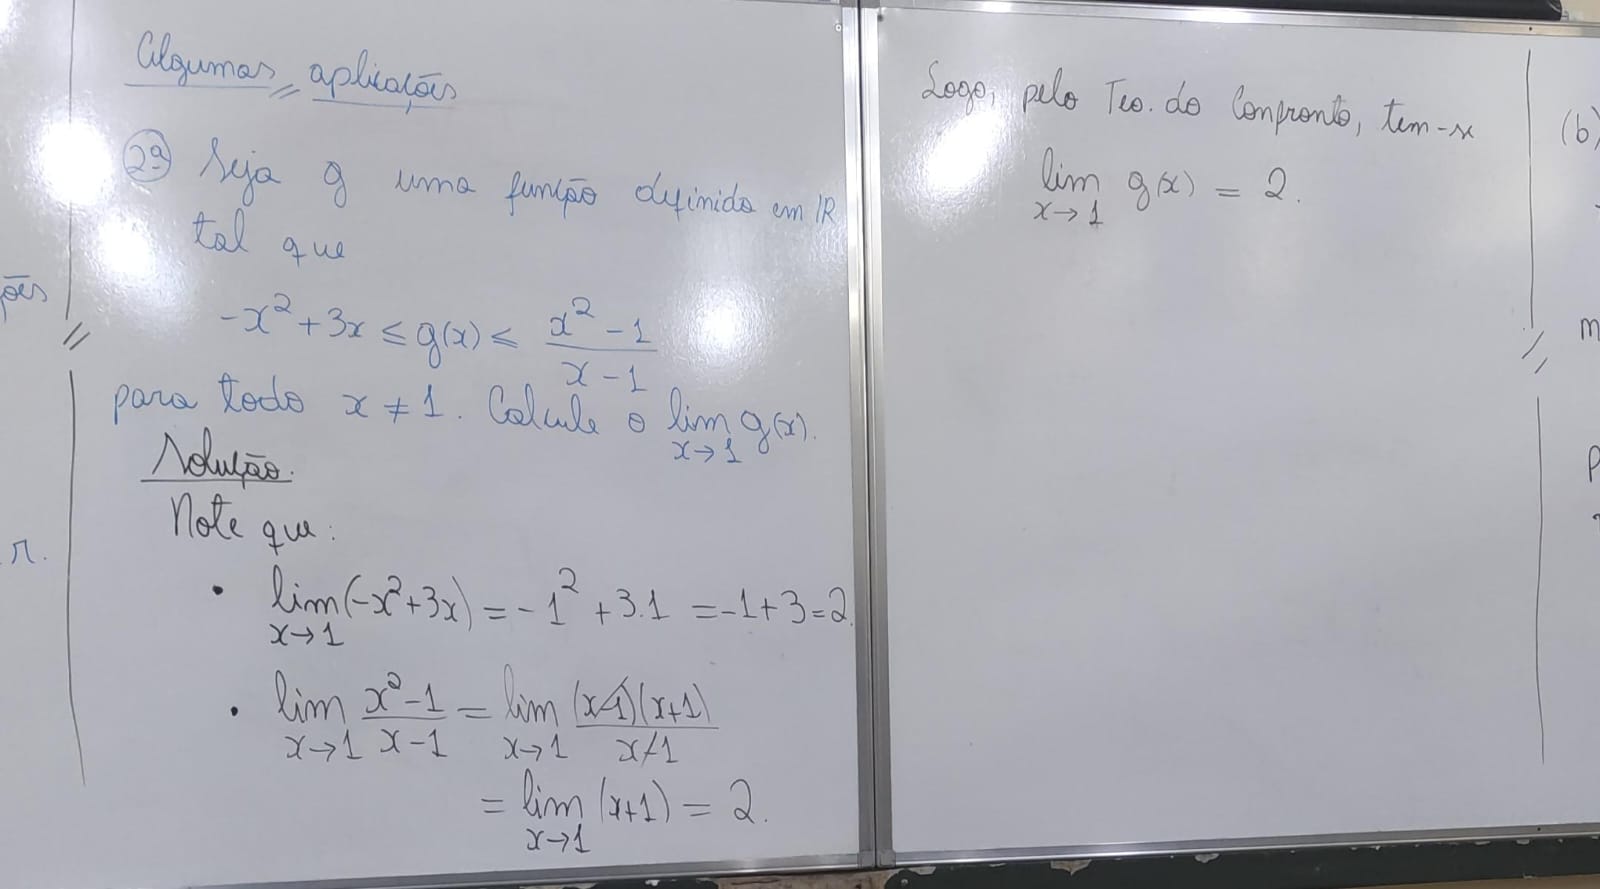 Algumas aplicações
2ª Seja g uma função definida em IR
tal que
-x² + 3x ≤ g(x) ≤ (x² - 1)/(x - 1)
para todo x ≠ 1. Calcule o lim g(x).
x→1
Solução.
Note que:
• lim (-x²+3x) = -1² + 3.1 = -1+3=2.
x→1
• lim (x²-1)/(x-1) = lim (x-1)(x+1)/(x-1)
x→1 x→1
= lim (x+1) = 2.
x→1
Logo, pelo Teo. do Confronto, tem-se
lim g(x) = 2.
x→1
ões
r.
(b)
m
p